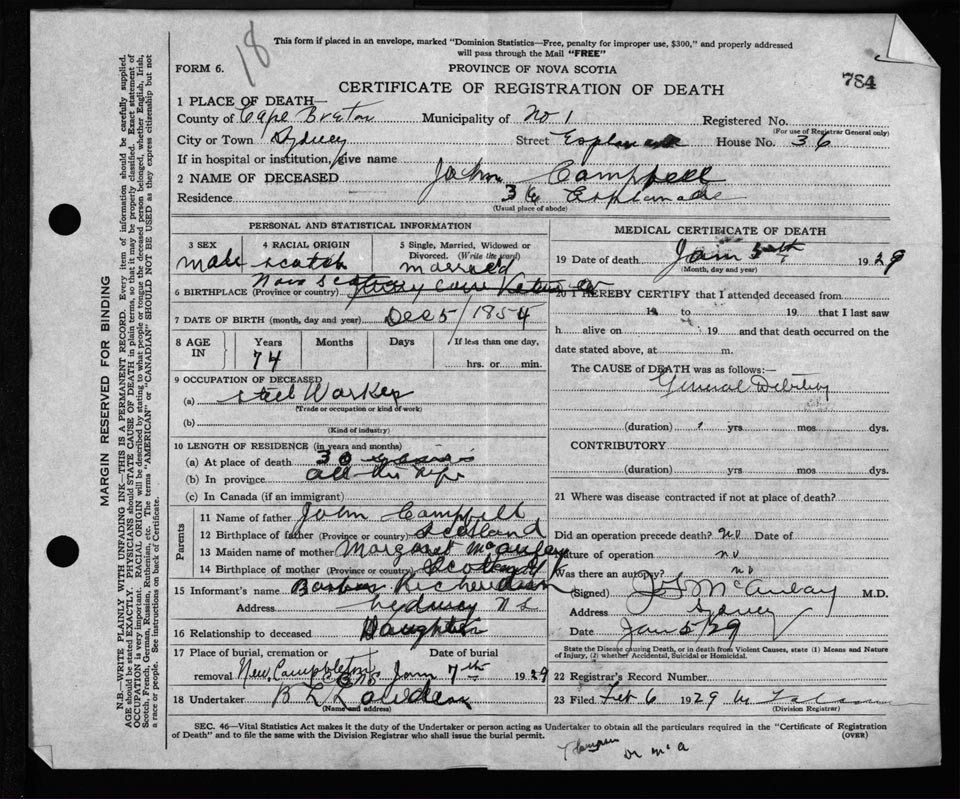 18
This form if placed in an envelope, marked "Dominion Statistics—Free, penalty for improper use, $300," and properly addressed
will pass through the Mail "FREE"
FORM 6.
PROVINCE OF NOVA SCOTIA
784
CERTIFICATE OF REGISTRATION OF DEATH
1 PLACE OF DEATH—
County of Cape Breton Municipality of No 1 Registered No.
(For use of Registrar General only)
City or Town Sydney Street Esplanade House No. 36
If in hospital or institution, give name
2 NAME OF DECEASED John Campbell
Residence 36 Esplanade
(Usual place of abode)
PERSONAL AND STATISTICAL INFORMATION
3 SEX male
4 RACIAL ORIGIN Scotch
5 Single, Married, Widowed or Divorced. (Write the word) married
6 BIRTHPLACE (Province or country) Nova Scotia
7 DATE OF BIRTH (month, day and year) Dec 5/1854
8 AGE IN Years 74 Months Days If less than one day, hrs. or min.
9 OCCUPATION OF DECEASED
(a) Steel Worker
(Trade or occupation or kind of work)
(b)
(Kind of industry)
10 LENGTH OF RESIDENCE (in years and months)
(a) At place of death 30 years
(b) In province all his life
(c) In Canada (if an immigrant)
Parents
11 Name of father John Campbell
12 Birthplace of father (Province or country) Scotland
13 Maiden name of mother Margaret McAuley
14 Birthplace of mother (Province or country) Scotland
15 Informant's name Barbara Richardson
Address Sydney N S
16 Relationship to deceased Daughter
17 Place of burial, cremation or removal New Campbleton Date of burial Jan 7th 1929
18 Undertaker B L
(Name and address)
MEDICAL CERTIFICATE OF DEATH
19 Date of death Jan 5th 1929
(Month, day and year)
20 I HEREBY CERTIFY that I attended deceased from
19 to 19 that I last saw
h alive on 19 and that death occurred on
date stated above, at m.
The CAUSE of DEATH was as follows:—
General Debility
(duration) yrs mos dys.
CONTRIBUTORY
(duration) yrs mos dys.
21 Where was disease contracted if not at place of death?
Did an operation precede death? no Date of
Nature of operation no
Was there an autopsy? no
(Signed) McAulay M.D.
Address Sydney
Date Jan 5/29
State the Disease causing Death, or in death from Violent Causes, state (1) Means and Nature
of Injury, (2) whether Accidental, Suicidal or Homicidal.
22 Registrar's Record Number
23 Filed Feb 6 1929
(Division Registrar)
SEC. 46—Vital Statistics Act makes it the duty of the Undertaker or person acting as Undertaker to obtain all the particulars required in the "Certificate of Registration
of Death" and to file the same with the Division Registrar who shall issue the burial permit.
(OVER)
MARGIN RESERVED FOR BINDING
N.B.—WRITE PLAINLY WITH UNFADING INK—THIS IS A PERMANENT RECORD. Every item of information should be carefully supplied.
AGE should be stated EXACTLY. PHYSICIANS should STATE CAUSE OF DEATH in plain terms, so that it may be properly classified. Exact statement of
OCCUPATION is very important. RACIAL ORIGIN will be described by stating to what people or tongue the deceased person belonged, whether English, Irish,
Scotch, French, German, Russian, Ruthenian, etc. The terms "AMERICAN" or "CANADIAN" SHOULD NOT BE USED as they express citizenship but not
a race or people. See instructions on back of Certificate.